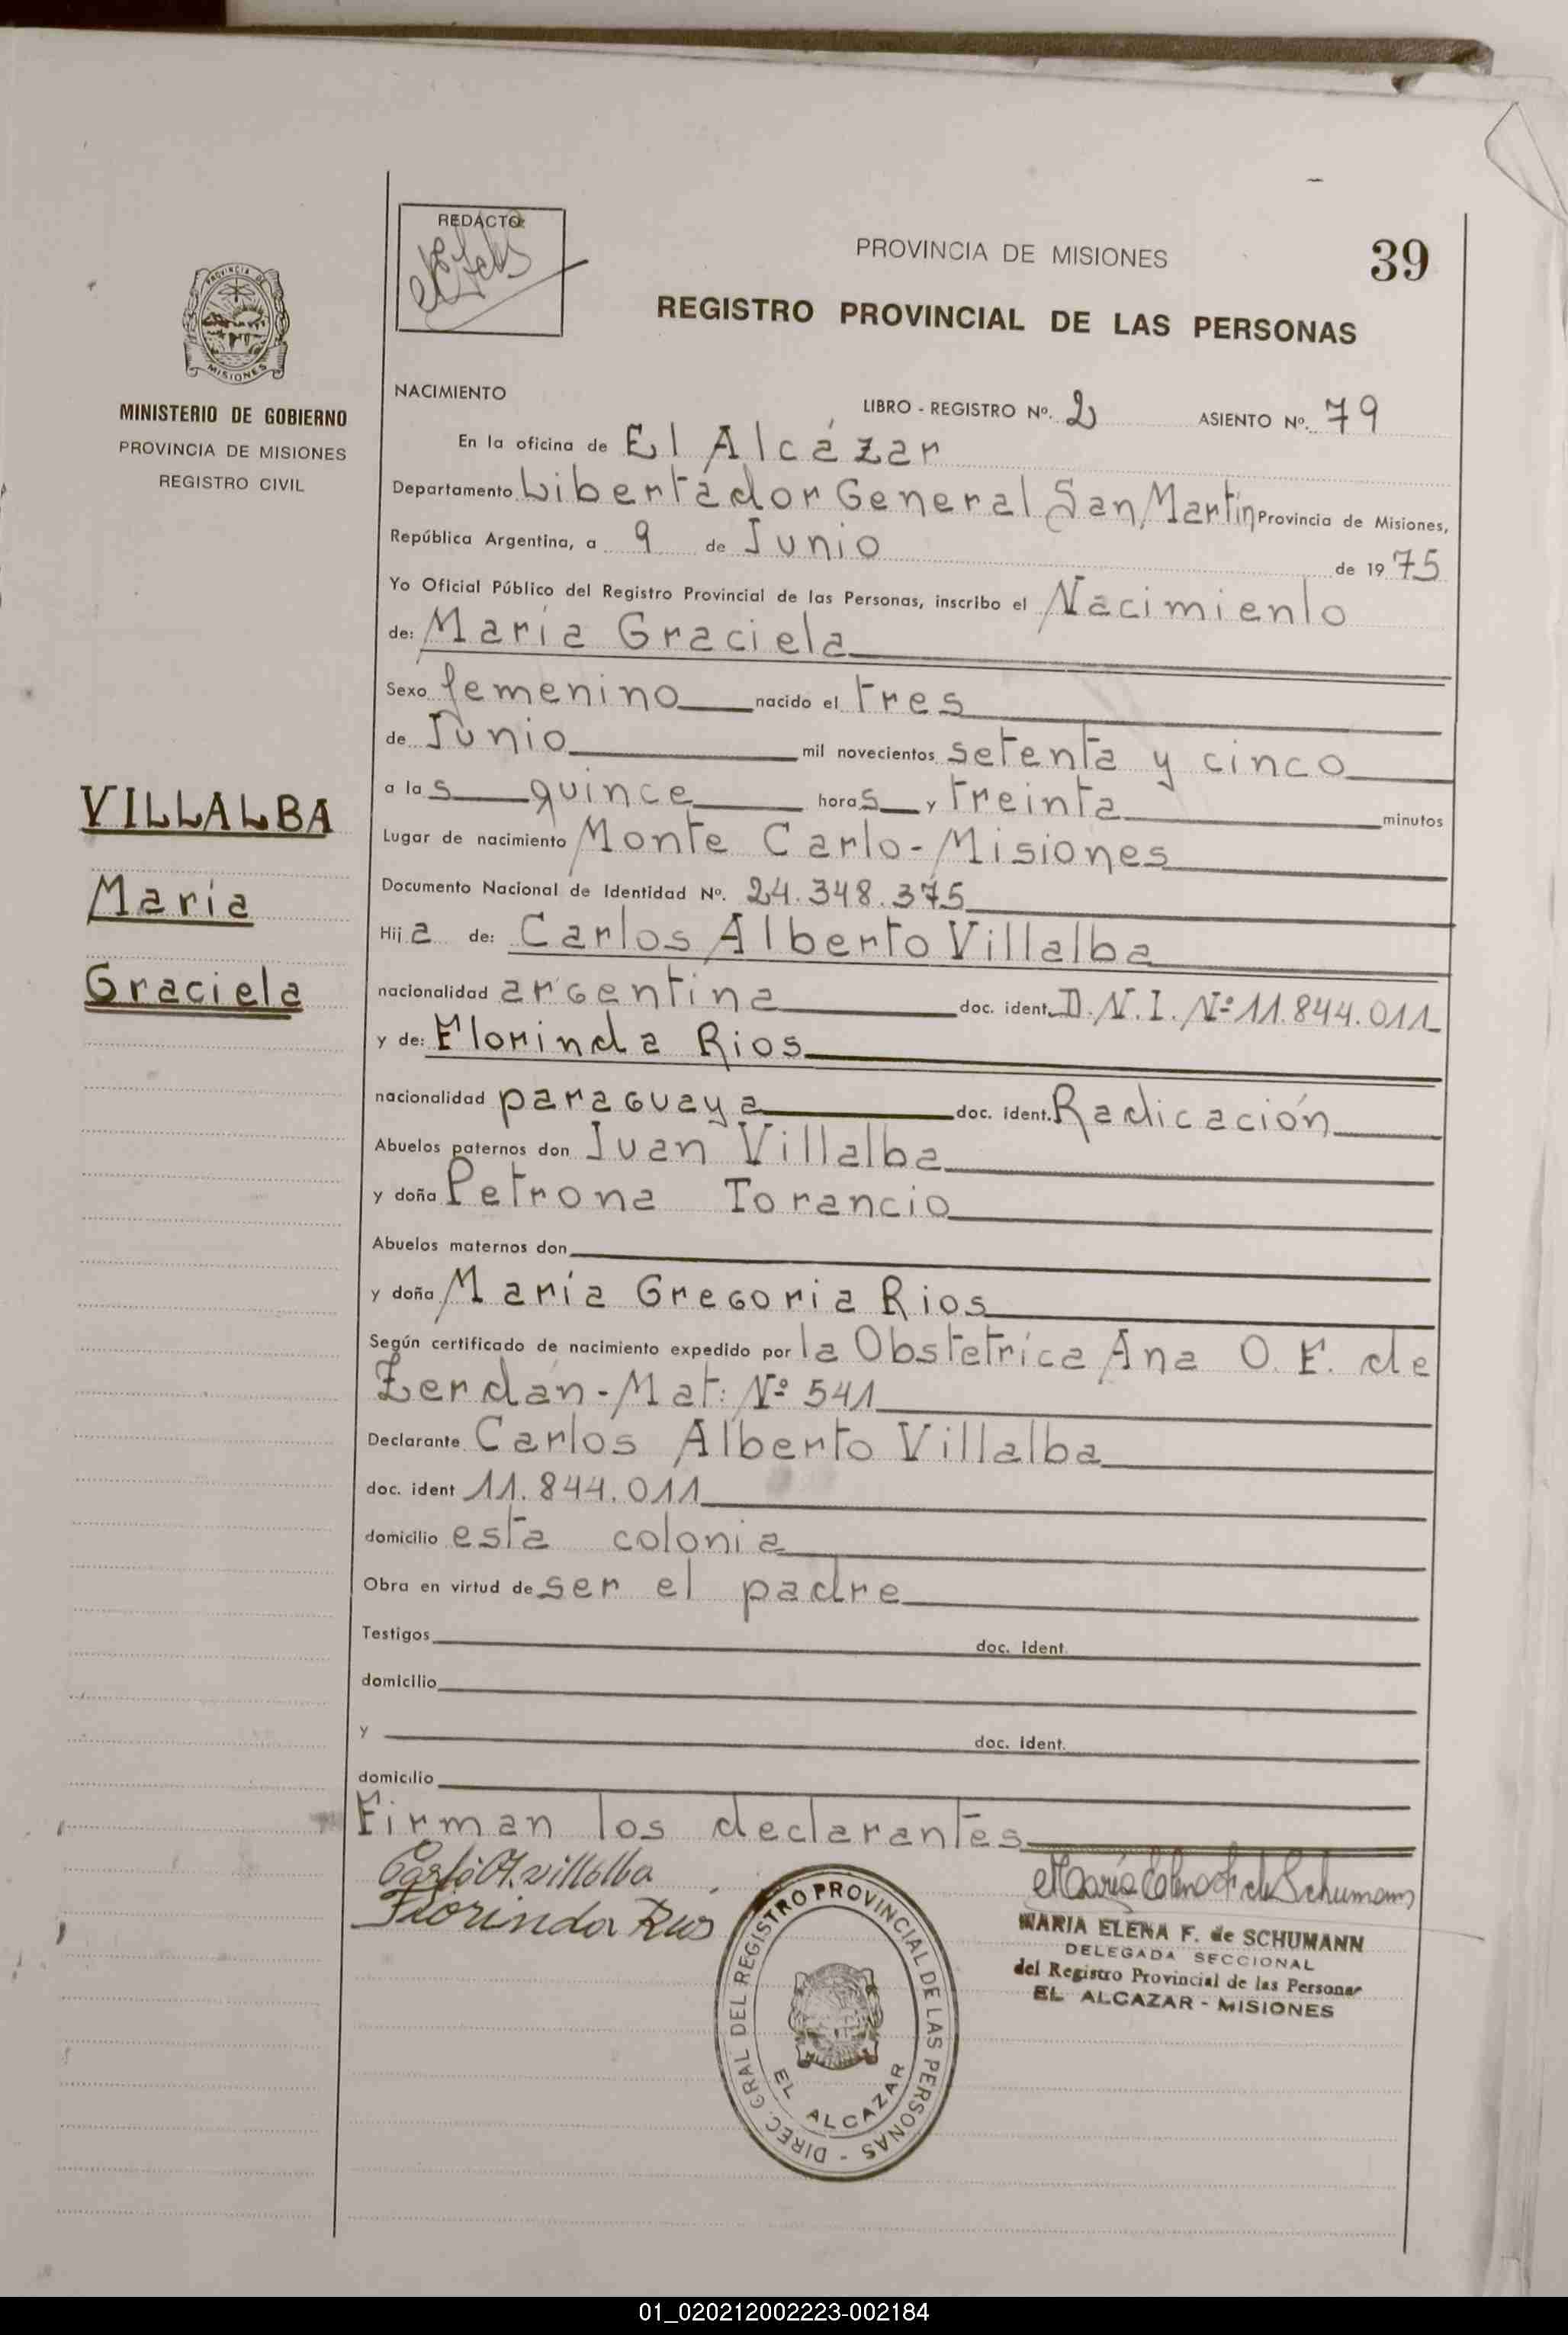 REDACTO:
PROVINCIA DE MISIONES
39
REGISTRO PROVINCIAL DE LAS PERSONAS
PROVINCIA DE
MISIONES
MINISTERIO DE GOBIERNO
PROVINCIA DE MISIONES
REGISTRO CIVIL
VILLALBA
María
Graciela
NACIMIENTO
LIBRO - REGISTRO Nº. 2 ASIENTO Nº. 79
En la oficina de El Alcázar
Departamento Libertador General San Martín Provincia de Misiones,
República Argentina, a 9 de Junio de 1975
Yo Oficial Público del Registro Provincial de las Personas, inscribo el Nacimiento
de: María Graciela
Sexo femenino nacido el tres
de Junio mil novecientos setenta y cinco
a las quince horas y treinta minutos
Lugar de nacimiento Monte Carlo - Misiones
Documento Nacional de Identidad Nº. 24.348.375
Hija de: Carlos Alberto Villalba
nacionalidad argentina doc. ident. D.N.I. Nº 11.844.011
y de: Florinda Rios
nacionalidad paraguaya doc. ident. Radicación
Abuelos paternos don Juan Villalba
y doña Petrona Torancio
Abuelos maternos don
y doña María Gregoria Rios
Según certificado de nacimiento expedido por la Obstetríca Ana O. E. de
Zerdán - Mat: Nº 541
Declarante Carlos Alberto Villalba
doc. ident 11.844.011
domicilio esta colonia
Obra en virtud de ser el padre
Testigos doc. ident.
domicilio
y doc. ident.
domicilio
Firman los declarantes
Carlo A. villalba
Florinda Rios
DIREC. GRAL DEL REGISTRO PROVINCIAL DE LAS PERSONAS -
EL ALCAZAR
María Elena F. de Schumann
MARIA ELENA F. de SCHUMANN
DELEGADA SECCIONAL
del Registro Provincial de las Personas
EL ALCAZAR - MISIONES
01_020212002223-002184